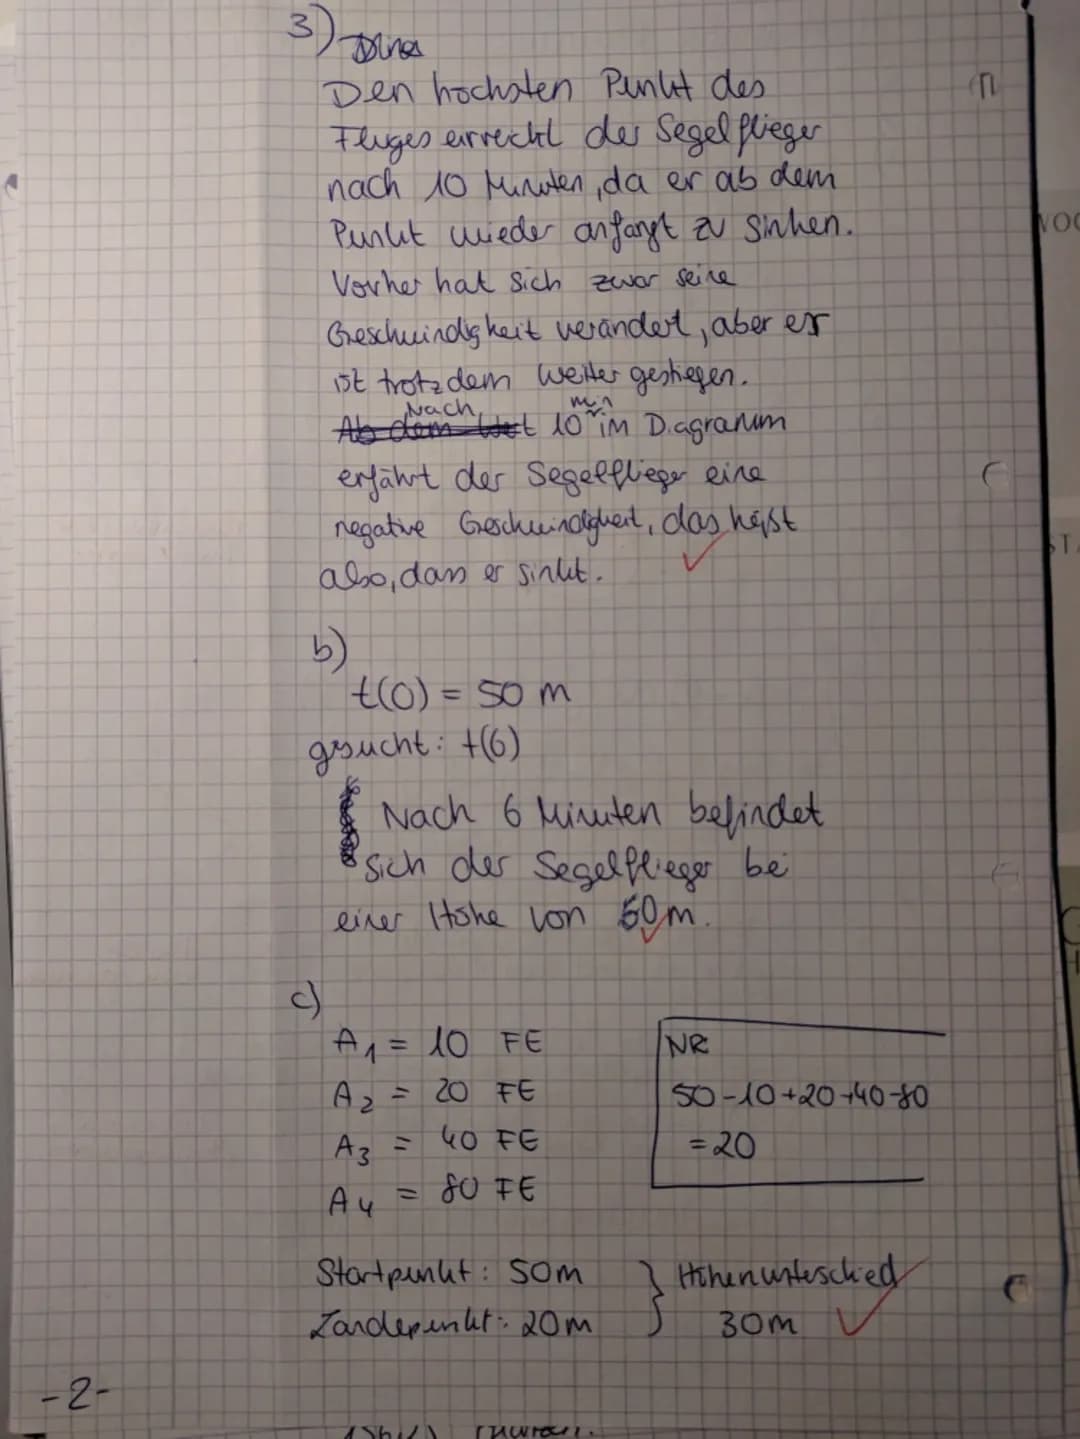 3)
Den höchsten Punkt des
Fluges erreicht der Segelflieger
nach 10 Minuten, da er ab dem
Punkt wieder anfängt zu sinken.
Vorher hat sich zwar seine
Geschwindigkeit verändert, aber er
ist trotzdem weiter gestiegen.
Nach 10 min im Diagramm
erfährt der Segelflieger eine
negative Geschwindigkeit, das heißt
also, dass er sinkt.
b)
t(0) = 50 m
gesucht: t(6)
Nach 6 Minuten befindet
sich der Segelflieger bei
einer Höhe von 60 m.
c)
A1 = 10 FE
A2 = 20 FE
A3 = 40 FE
A4 = 80 FE
NR
50-10+20+40-80
= 20
Startpunkt: 50m } Höhenunterschied
Landepunkt: 20m } 30m
-2-